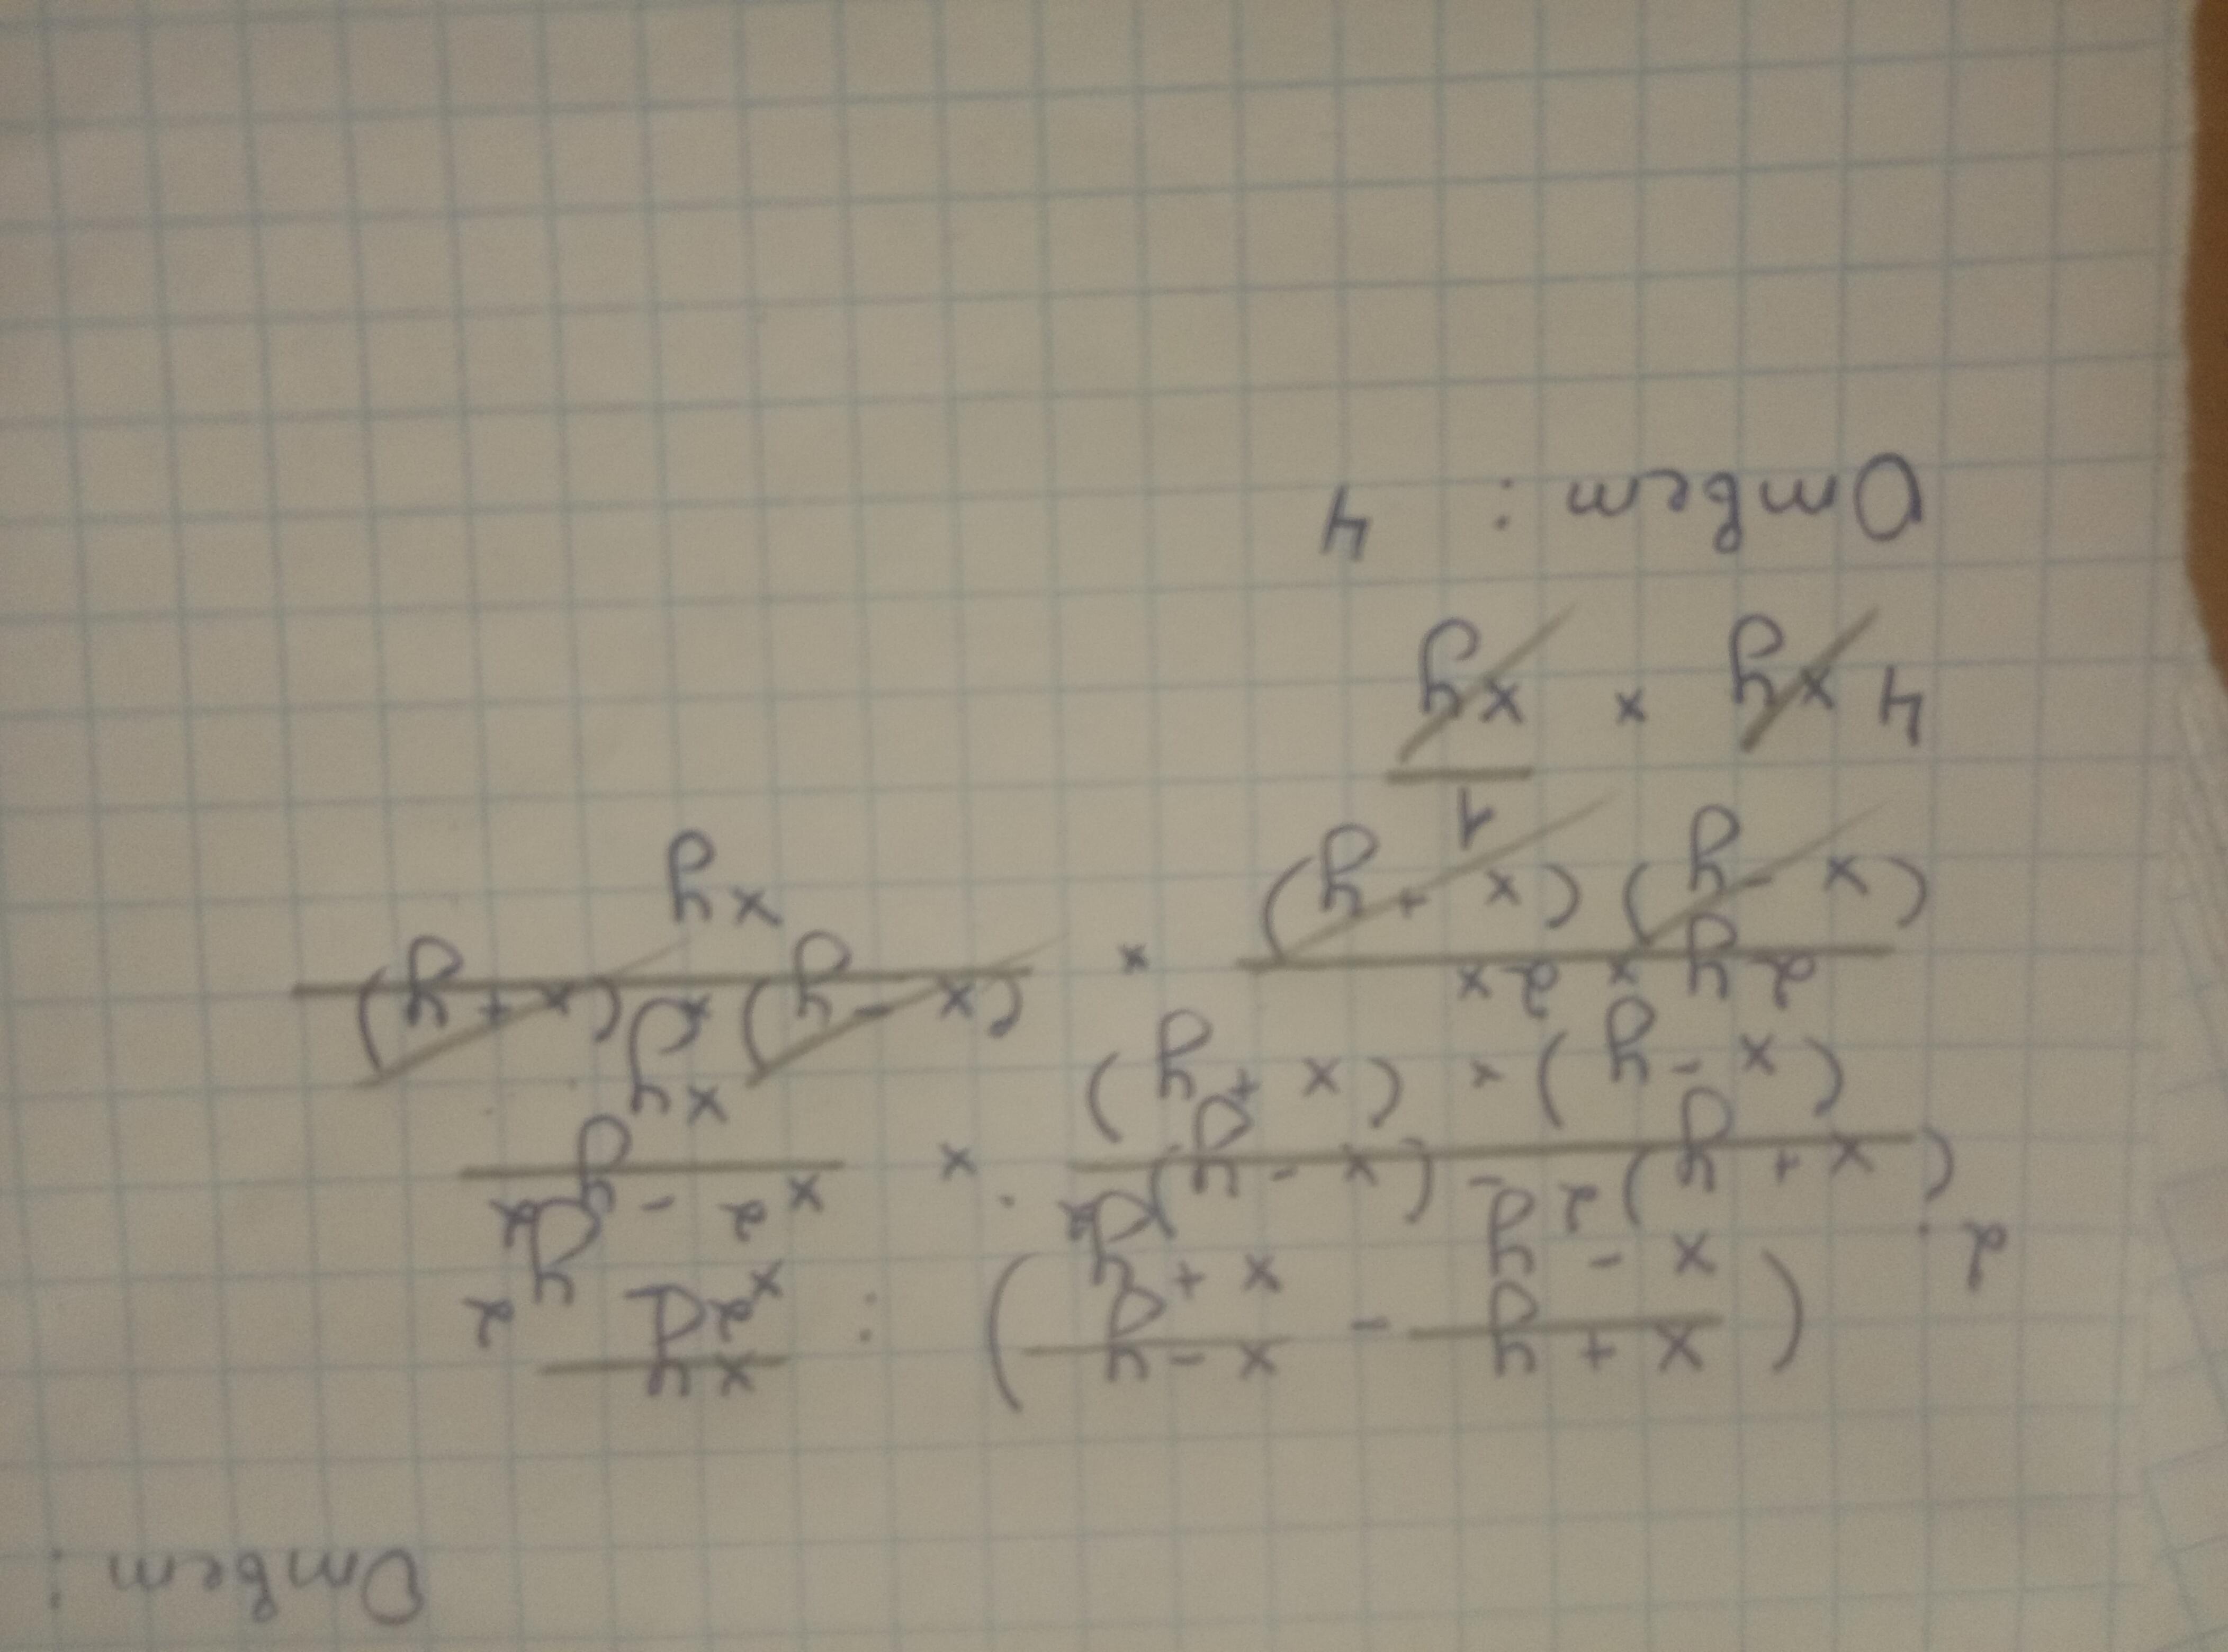 Ответ:
2. ((x+y)/(x-y) - (x-y)/(x+y)) : xy/(x²-y²)
((x+y)² - (x-y)²)/((x-y) × (x+y)) × (x²-y²)/xy
(2y × 2x)/((x-y)(x+y)) × ((x-y) × (x+y))/xy
4xy × 1/xy
Ответ: 4